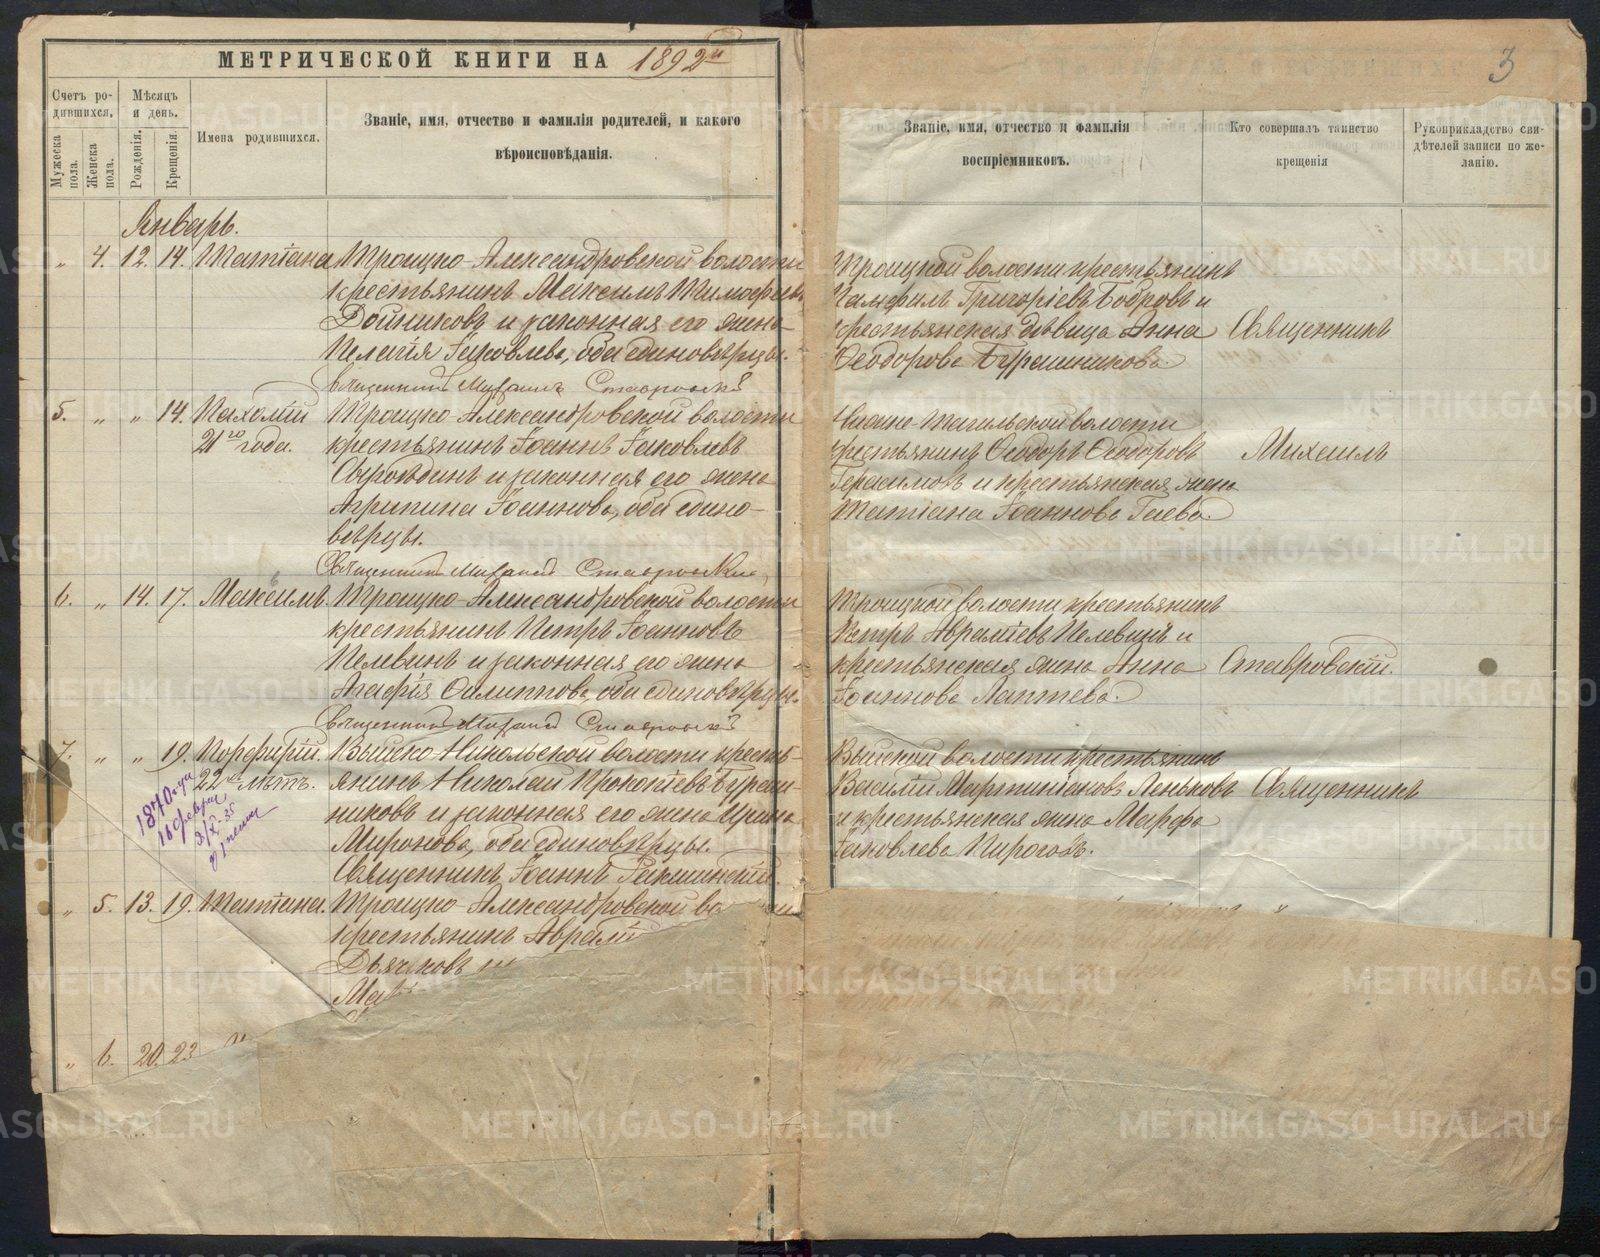 МЕТРИЧЕСКОЙ КНИГИ НА 1892й
3
Счетъ ро-
дившихся.
Мужеска пола.
Женска пола.
Мѣсяцъ
и день.
Рожденія.
Крещенія.
Имена родившихся.
Званіе, имя, отчество и фамилія родителей, и какого
вѣроисповѣданія.
Званіе, имя, отчество и фамилія
воспріемниковъ.
Кто совершалъ таинство
крещенія
Рукоприкладство сви-
дѣтелей записи по же-
ланію.
Январь.
„ 4. 12. 14. Татіана
Троицко-Александровской волости
крестьянинъ Максимъ Тимофеевъ
Дойниковъ и законная его жена
Пелагія Іаковлева, оба единовѣрцы.
Священникъ Михаилъ Ставровскій
Троицкой волости крестьянинъ
Памфилъ Григоріевъ Бобровъ и
крестьянская дѣвица Анна
Ѳеодорова Бурашникова
Священникъ
5. „ „ 14. Пахомій
21го года.
Троицко-Александровской волости
крестьянинъ Іоаннъ Іаковлевъ
Сыроѣдинъ и законная его жена
Агрипина Іоаннова, оба едино-
вѣрцы.
Священникъ Михаилъ Ставровскій
Тагильской волости
крестьянинъ Ѳеодоръ Ѳеодоровъ
Герасимовъ и крестьянская жена
Татіана Іоаннова Гаева.
Михаилъ
6. „ 14. 17. Максимъ.
Троицко-Александровской волости
крестьянинъ Петръ Іоанновъ
Пелевинъ и законная его жена
Агафія Филиппова, оба единовѣрцы.
Священникъ Михаилъ Ставровскій
Троицкой волости крестьянинъ
Петръ Авраміевъ Пелевинъ и
крестьянская жена Анна
Іоаннова Лаптева.
Ставровскій.
7. „ „ 19. Порфирій.
22хъ лѣтъ.
1870 года
16 февраля
Выйско-Никольской волости кресть-
янинъ Николай Прокопіевъ Бураш-
никовъ и законная его жена Ирина
Миронова, оба единовѣрцы.
Священникъ Іоаннъ
Выйской волости крестьянинъ
Василій Мартиніановъ Леньковъ
и крестьянская жена Марфа
Іаковлева Пирогова.
Священникъ
„ 5. 13. 19. Татіана.
Троицко-Александровской
крестьянинъ Аврамій
Дьячковъ
„ 6. 20. 23
METRIKI.GASO-URAL.RU